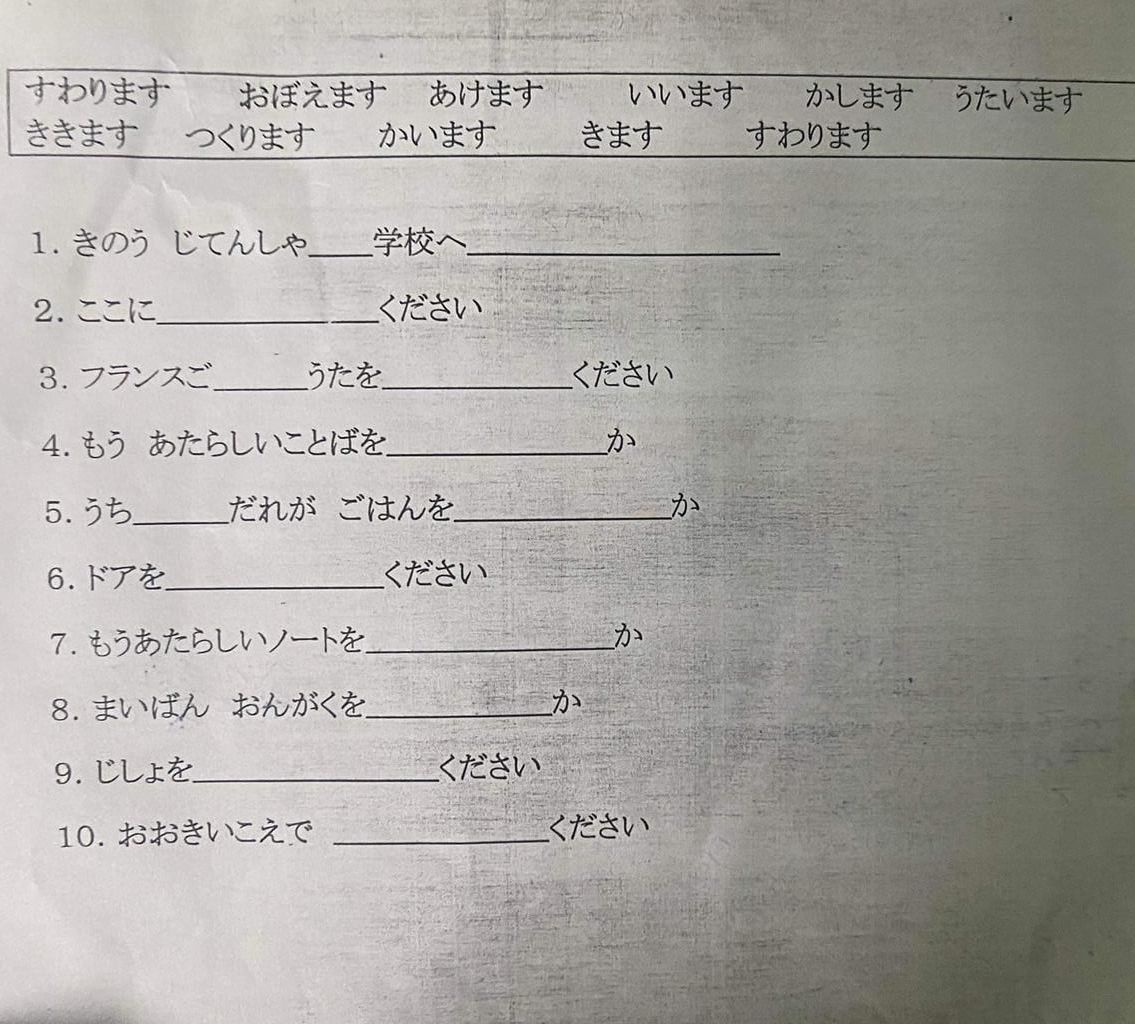 すわります おぼえます あけます いいます かします うたいます
ききます つくります かいます きます すわります
1. きのう じてんしゃ____学校へ____________________
2. ここに______________ください
3. フランスご______うたを____________ください
4. もう あたらしいことばを______________か
5. うち______だれが ごはんを______________か
6. ドアを______________ください
7. もうあたらしいノートを________________か
8. まいばん おんがくを____________か
9. じしょを________________ください
10. おおきいこえで ______________ください